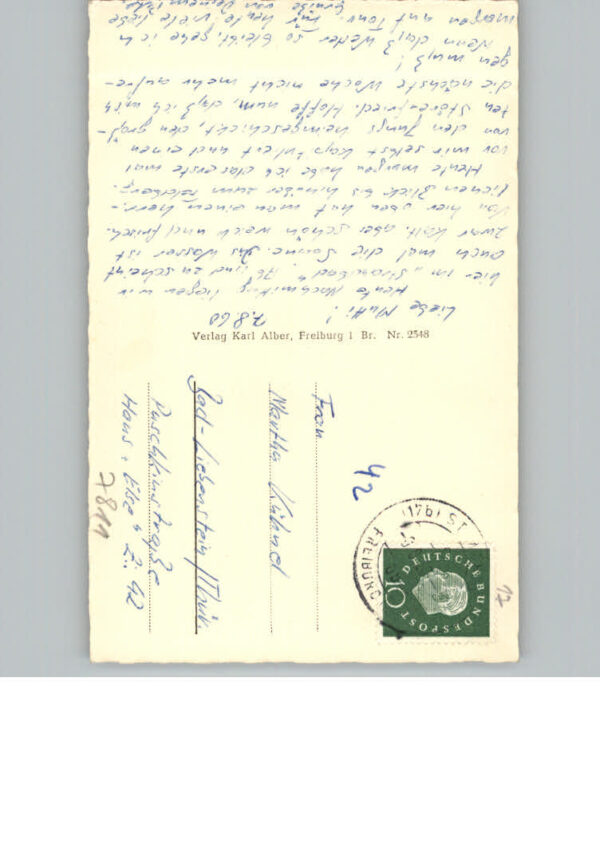 7.8.60
Liebe Mutti!
Heute Nachmittag liegen wir
hier im "Strandbad", ab und zu scheint
auch mal die Sonne. Das Wasser ist
zwar kalt, aber schön weich und frisch.
Von hier oben hat man einen herr-
lichen Blick bis hinüber zum Feldberg.
Heute morgen habe ich das erste mal
vor mir selbst kapituliert und einen
von den Jungs heimgeschickt, den größ-
ten Störenfried. Hoffe nun, daß ich mich
die nächste Woche nicht mehr aufre-
gen muß!
Wenn daß Wetter so bleibt, gehe ich
morgen auf Tour. Für heute viele liebe
Grüße von Deinem
Verlag Karl Alber, Freiburg i Br. Nr. 2548
Frau
Martha
Bad-Liebenstein/Thür.
Puschkinstraße
Haus "Else" Z. 42
7811
42
17
FREIBURG
(17b)
DEUTSCHE BUNDESPOST
10